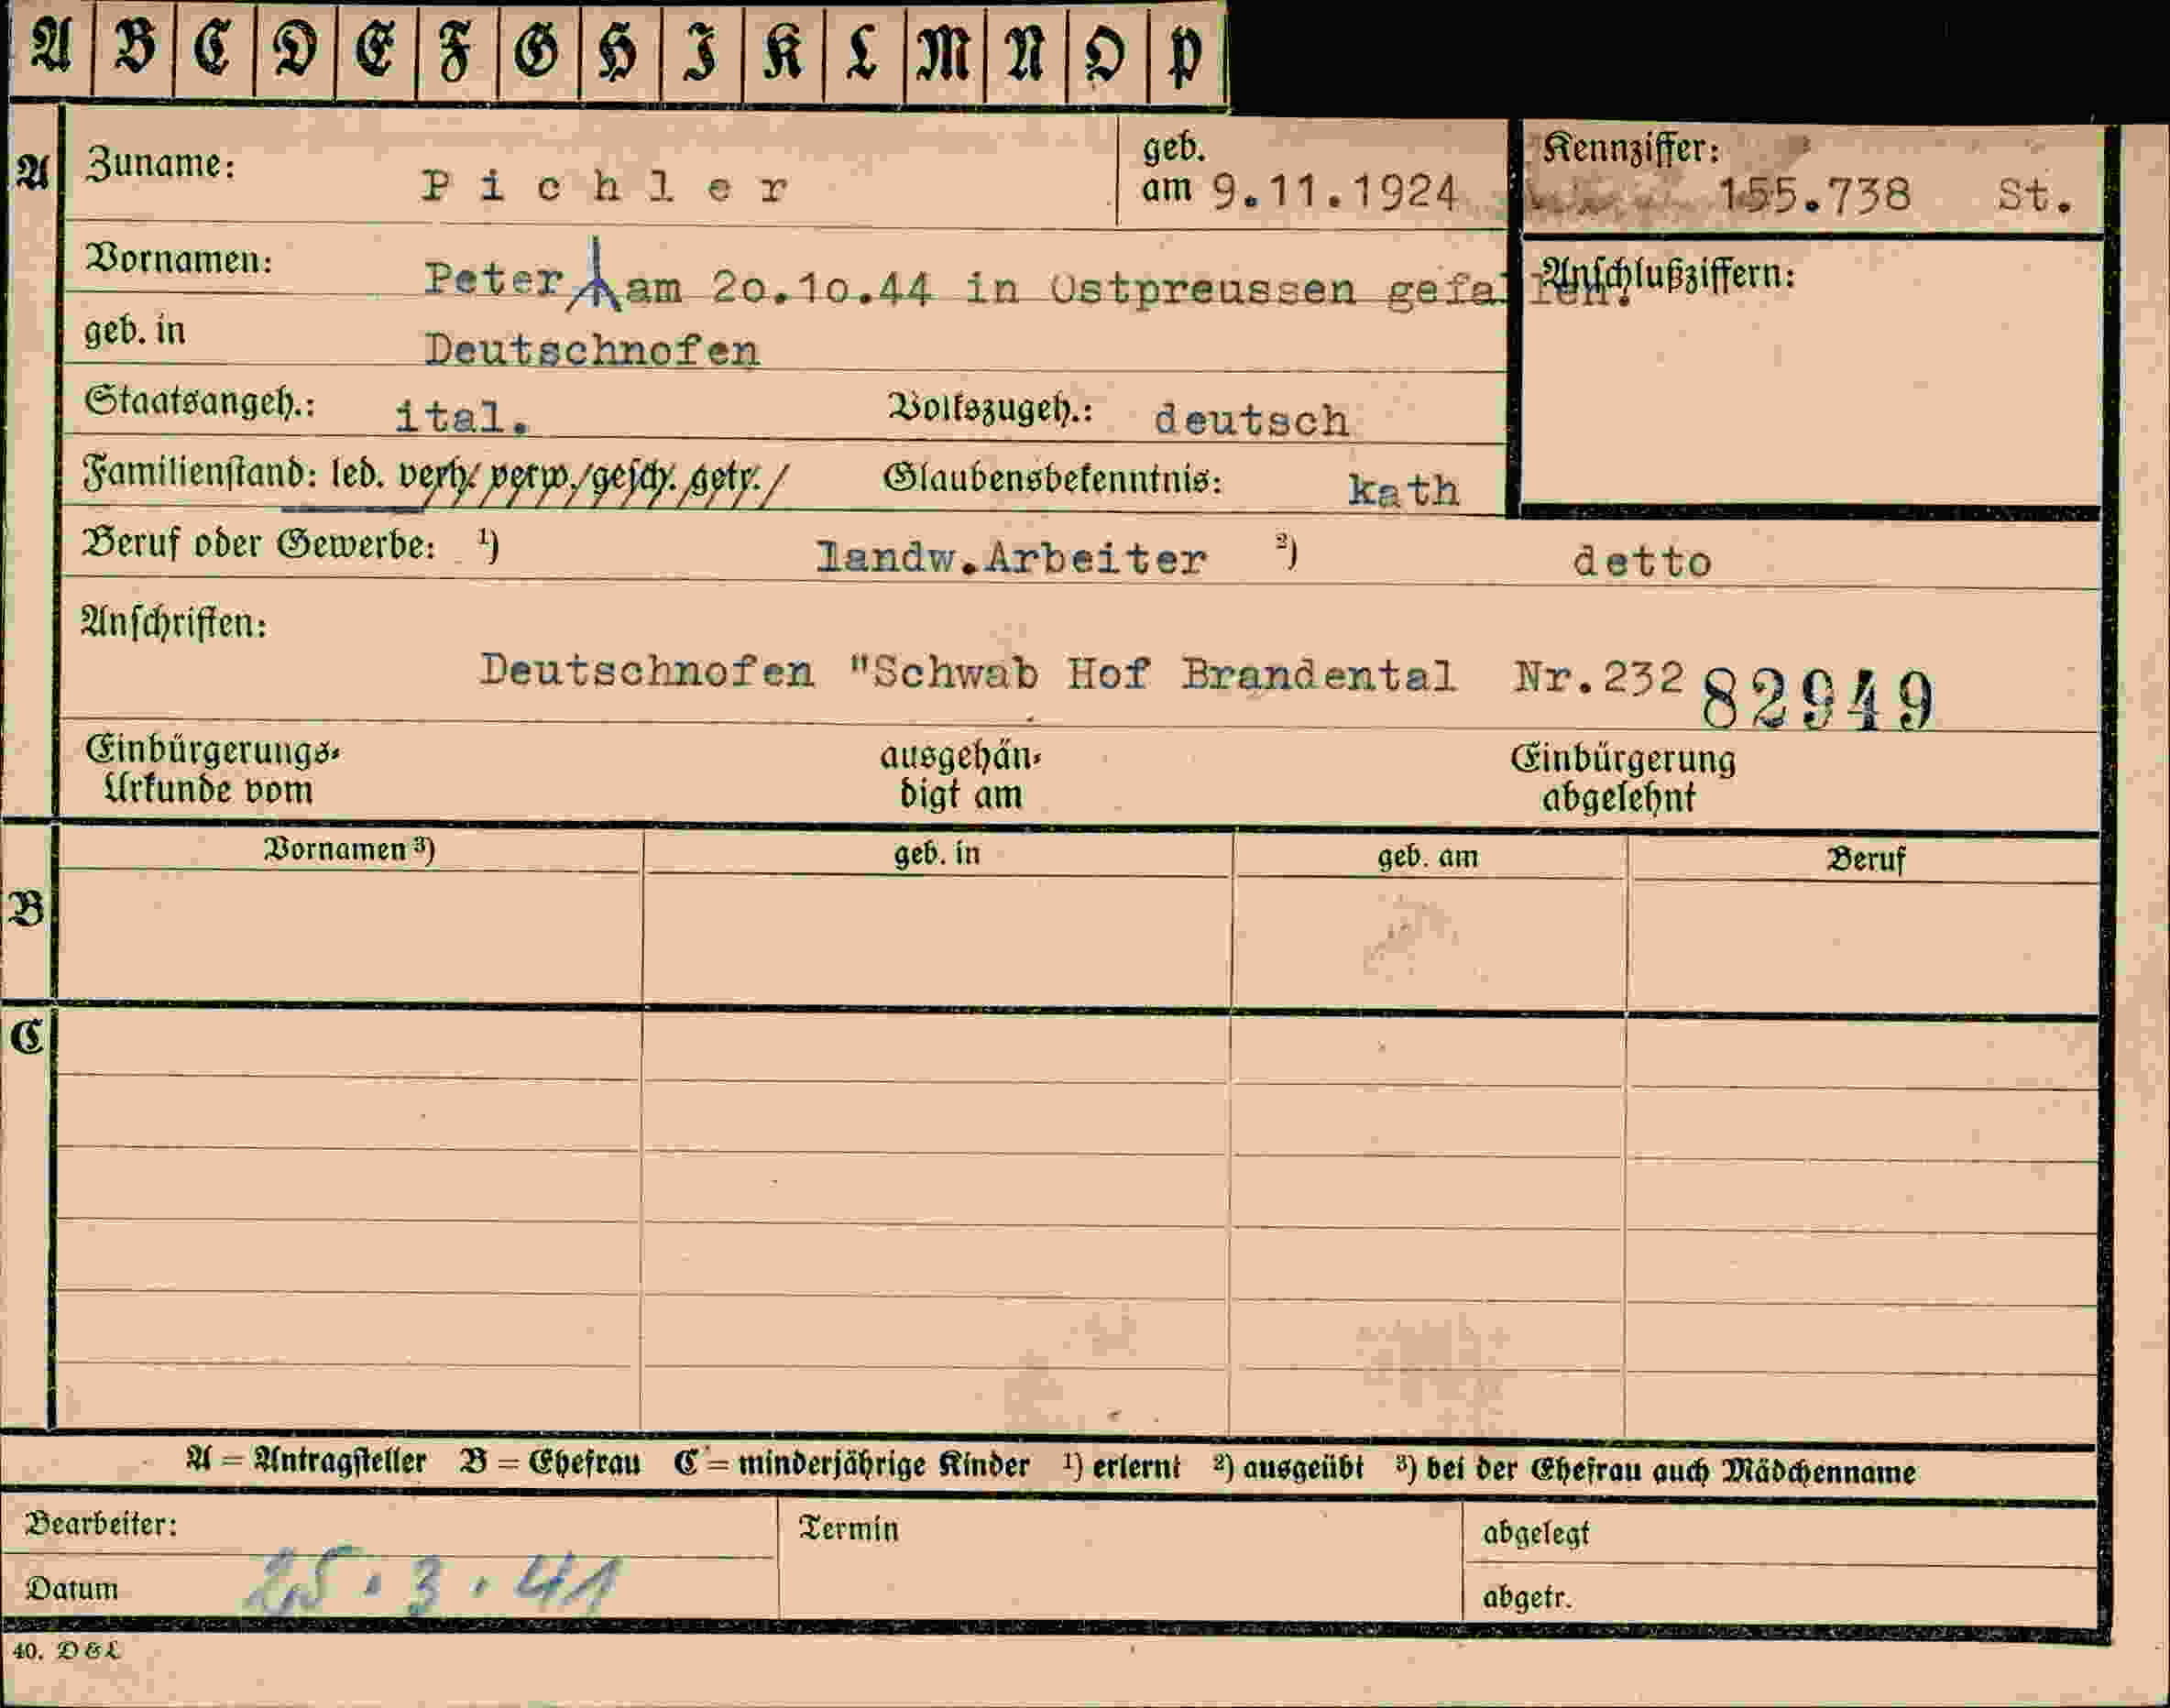 A B C D E F G H I K L M N O P
A Zuname: Pichler geb. am 9.11.1924 Kennziffer: 155.738 St.
Vornamen: Peter am 20.10.44 in Ostpreussen gefallen. Anschlußziffern:
geb. in Deutschnofen
Staatsangeh.: ital. Volkszugeh.: deutsch
Familienstand: led. verh. verw. gesch. getr. Glaubensbekenntnis: kath
Beruf oder Gewerbe: 1) landw.Arbeiter 2) detto
Anschriften:
Deutschnofen "Schwab Hof Brandental Nr.232 82949
Einbürgerungs- ausgehän- Einbürgerung
Urkunde vom digt am abgelehnt
Vornamen 3) geb. in geb. am Beruf
B
C
A = Antragsteller B = Ehefrau C = minderjährige Kinder 1) erlernt 2) ausgeübt 3) bei der Ehefrau auch Mädchenname
Bearbeiter: Termin abgelegt
Datum 25.3.41 abgetr.
40. D & L